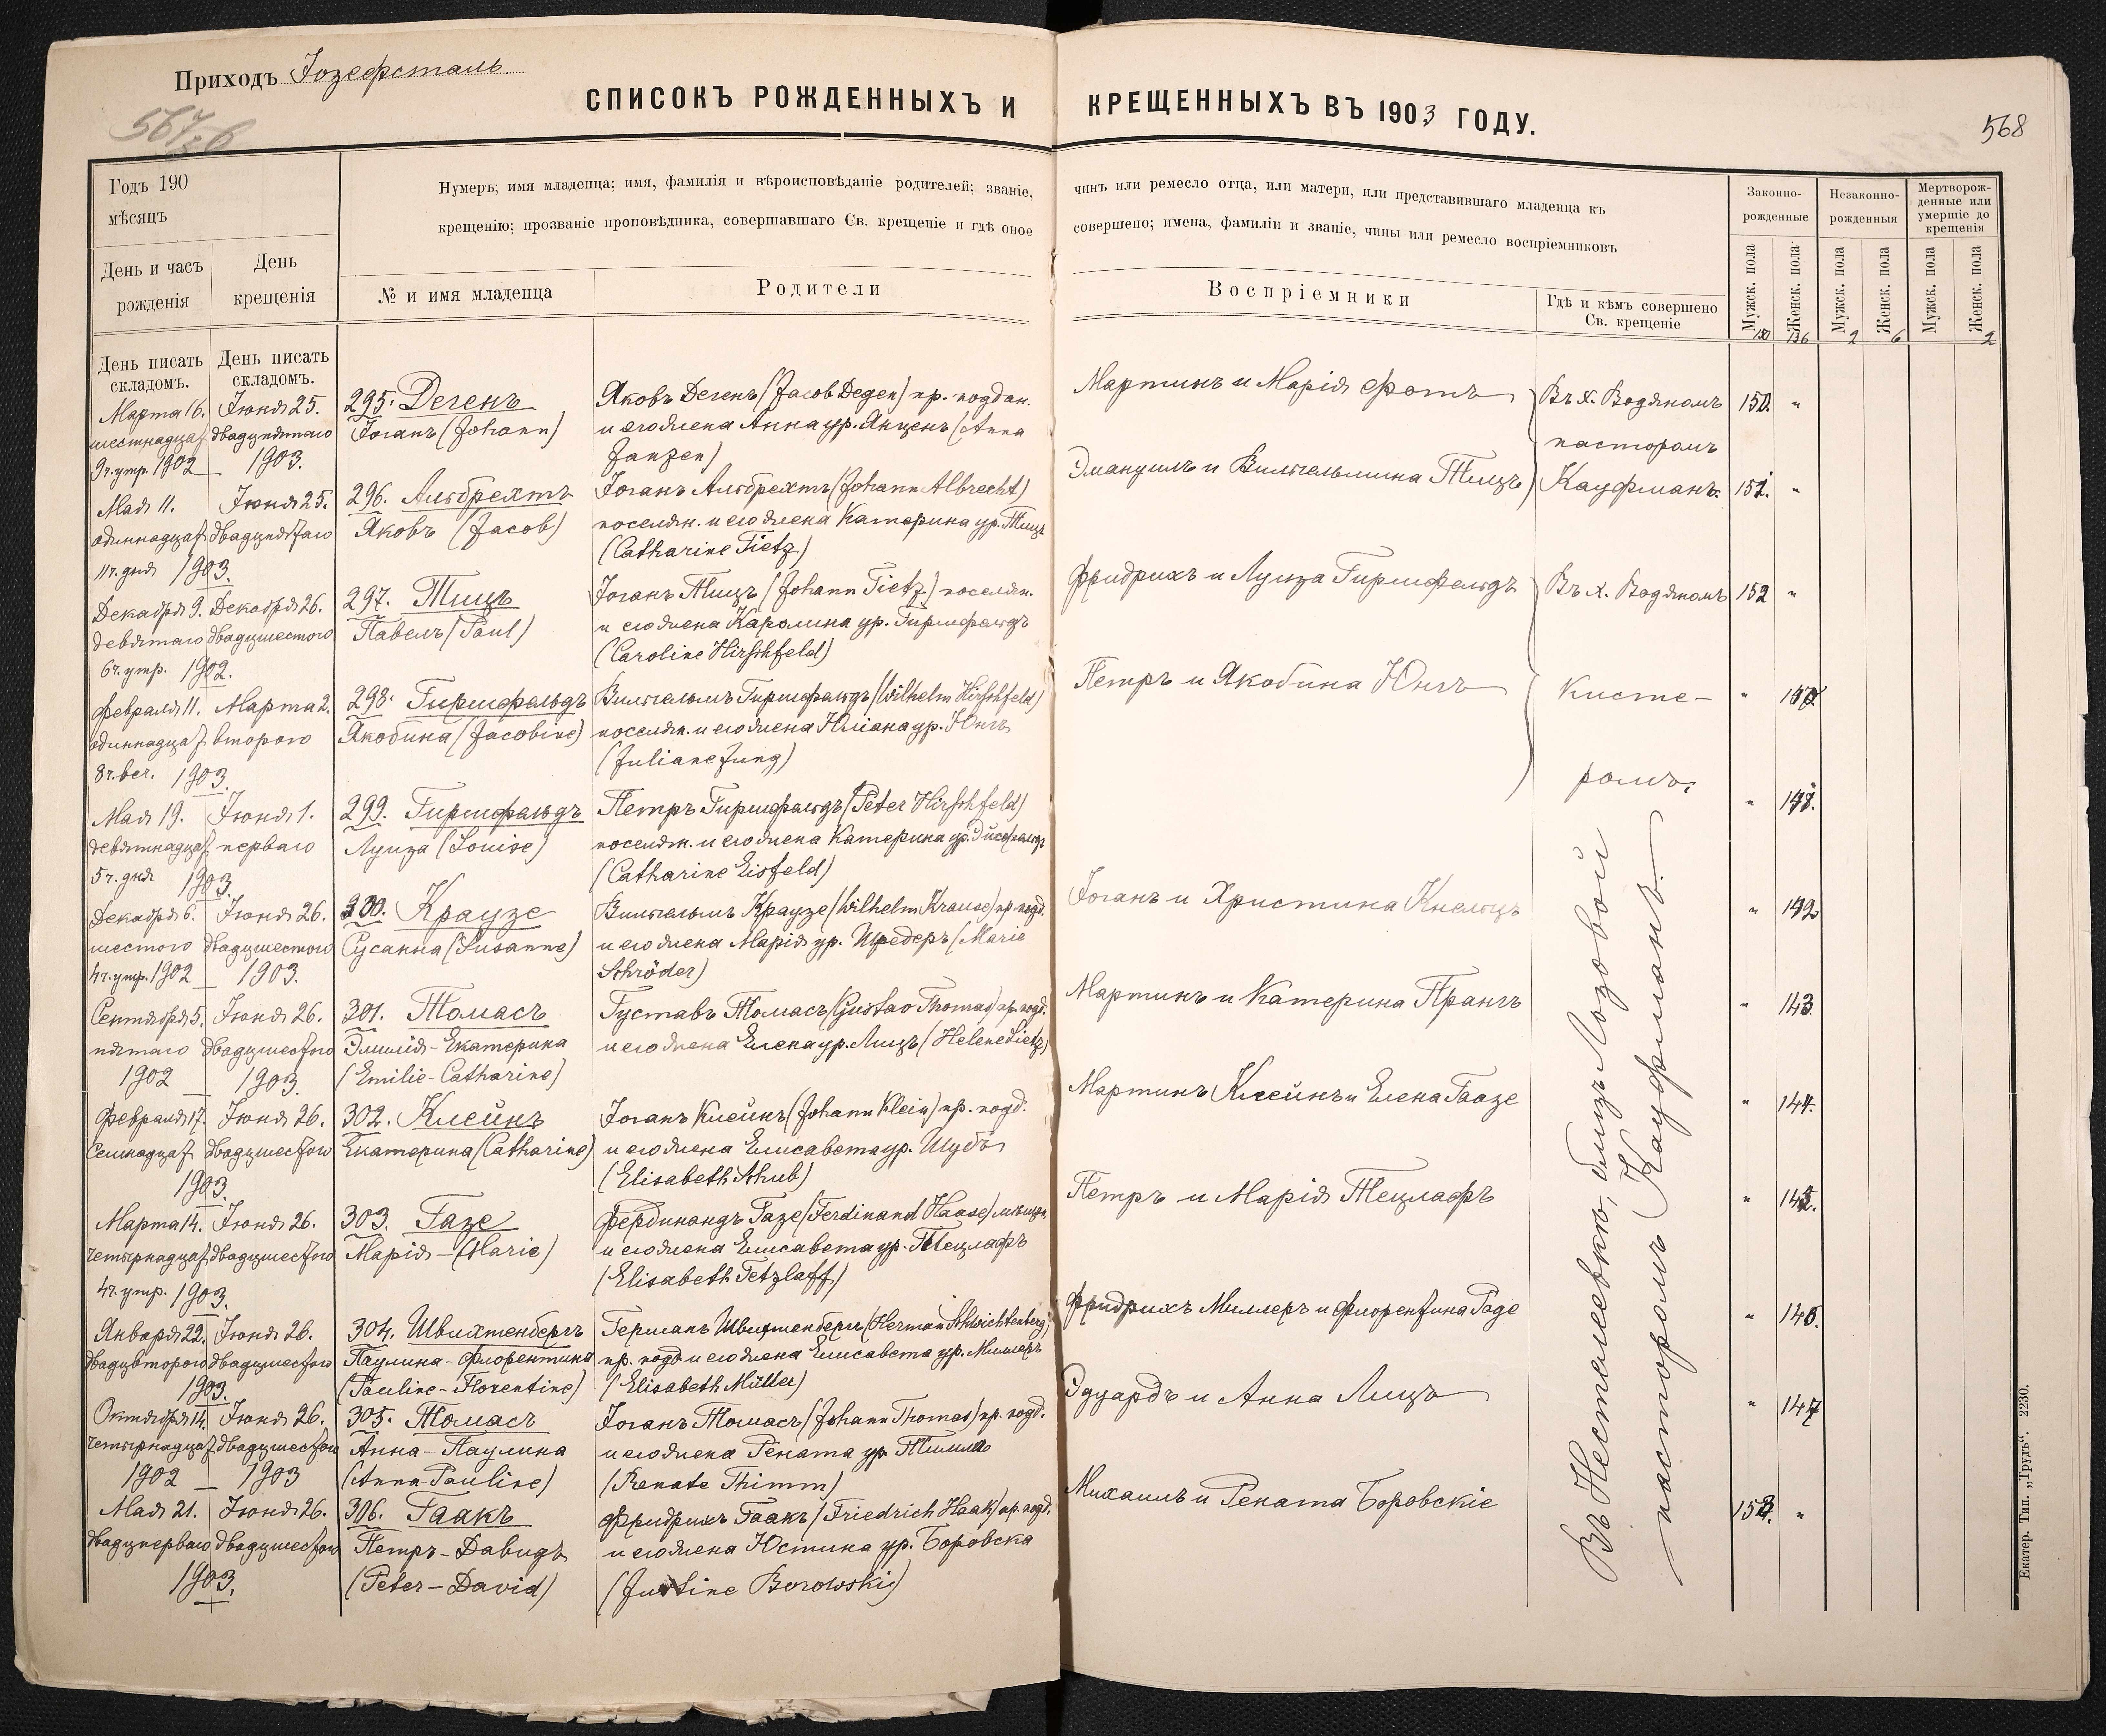 Приходъ Іозефсталь
567
568
СПИСОКЪ РОЖДЕННЫХЪ И КРЕЩЕННЫХЪ ВЪ 1903 ГОДУ.
Годъ 190
мѣсяцъ
Нумеръ; имя младенца; имя, фамилія и вѣроисповѣданіе родителей; званіе, чинъ или ремесло отца, или матери, или представившаго младенца къ
крещенію; прозваніе проповѣдника, совершавшаго Св. крещеніе и гдѣ оное совершено; имена, фамиліи и званіе, чины или ремесло воспріемниковъ
Законно-
рожденные
Незаконно-
рожденныя
Мертворож-
денные или
умершіе до
крещенія
День и часъ
рожденія
День
крещенія
№ и имя младенца
Родители
Воспріемники
Гдѣ и кѣмъ совершено
Св. крещеніе
Мужск. пола
Женск. пола
Мужск. пола
Женск. пола
Мужск. пола
Женск. пола
136 2 6 2
День писать
складомъ.
День писать
складомъ.
Марта 16.
шестнадцаt
9ч. утр. 1902
Іюня 25.
двадцпятаго
1903.
295. Дегенъ
Іоганъ (Johann)
Яковъ Дегенъ (Jacob Degen) пр. поддан.
и его жена Анна ур. Янценъ (Anna
Janzen)
Мартинъ и Марія Фотъ
Въ х. Водяномъ
пасторомъ
150. "
Мая 11.
одиннадцаt
11ч. дня 1903.
Іюня 25.
двадцпяtаго
296. Альбрехтъ
Яковъ (Jacob)
Іоганъ Альбрехтъ (Johann Albrecht)
поселян. и его жена Катерина ур. Тицъ
(Catharine Tietz)
Эмануилъ и Вильгельмина Тицъ
Кауфманъ.
151. "
Декабря 9.
девятаго
6ч. утр. 1902.
Декабря 26.
двадцшестого
297. Тицъ
Павелъ (Paul)
Іоганъ Тицъ (Johann Tietz) поселян.
и его жена Каролина ур. Гиршфельдъ
(Caroline Hirschfeld)
Фридрихъ и Луиза Гиршфельдъ
Въ х. Водяномъ
152 "
Февраля 11.
одиннадцаt
8ч. веч. 1903.
Марта 2.
второго
298. Гиршфельдъ
Якобина (Jacobine)
Вильгельмъ Гиршфельдъ (Wilhelm Hirschfeld)
поселян. и его жена Юліана ур. Юнгъ
(Juliane Jung)
Петръ и Якобина Юнгъ
Кисте-
ромъ.
"
Мая 19.
девятнадцаt
5ч. дня 1903.
Іюня 1.
перваго
299. Гиршфельдъ
Луиза (Louise)
Петръ Гиршфельдъ (Peter Hirschfeld)
поселян. и его жена Катерина ур. Эйсфельдъ
(Catharine Eisfeld)
"
Декабря 6.
шестого
4ч. утр. 1902
Іюня 26.
двадцшестого
1903.
300. Краузе
Сусанна (Susanne)
Вильгельмъ Краузе (Wilhelm Krause) пр. подд.
и его жена Марія ур. Шредеръ (Marie
Schröder)
Іоганъ и Христина Кнельцъ
" 142
Сентября 5.
пятаго
1902
Іюня 26.
двадцшесtого
1903.
301. Томасъ
Эмилія-Екатерина
(Emilie-Catharine)
Густавъ Томасъ (Gustav Thomas) пр. подд.
и его жена Елена ур. Лицъ (Helene Lietz)
Мартинъ и Катерина Прангъ
" 143.
Февраля 17.
Семнадцаt
1903.
Іюня 26.
двадцшесtого
302. Клейнъ
Екатерина (Catharine)
Іоганъ Клейнъ (Johann Klein) пр. подд.
и его жена Елисавета ур. Шубъ
(Elisabeth Schub)
Мартинъ Клейнъ и Елена Гаазе
" 144.
Марта 14.
четырнадцаt
4ч. утр. 1903.
Іюня 26.
двадцшесtого
303. Газе
Марія - (Marie)
Фердинандъ Газе (Ferdinand Haase) мѣщан.
и его жена Елисавета ур. Тецлафъ
(Elisabeth Tetzlaff)
Петръ и Марія Тецлафъ
" 145.
Января 22.
двадцвторого
1903.
Іюня 26.
двадцшесtого
304. Швихтенбергъ
Паулина-Флорентина
(Pauline-Florentine)
Германъ Швихтенбергъ (Herman Schwichtenberg)
пр. подд. и его жена Елисавета ур. Миллеръ
(Elisabeth Müller)
Фридрихъ Миллеръ и Флоренtина Раде
" 146.
Октября 14.
четырнадцаt
1902
Іюня 26.
двадцшесtого
1903
305. Томасъ
Анна-Паулина
(Anna-Pauline)
Іоганъ Томасъ (Johann Thomas) пр. подд.
и его жена Рената ур. Тиммъ
(Renate Thimm)
Эдуардъ и Анна Лицъ
" 147
Мая 21.
двадцперваго
1903.
Іюня 26.
двадцшесtого
306. Гаакъ
Петръ-Давидъ
(Peter-David)
Фридрихъ Гаакъ (Friedrich Haak) пр. подд.
и его жена Юстина ур. Боровска
(Justine Borowski)
Михаилъ и Рената Боровскіе
153. "
Въ Нестелеевкѣ, близъ Лозовой
пасторомъ Кауфманъ.
Екатер. Тип. „Трудъ“. 2230.